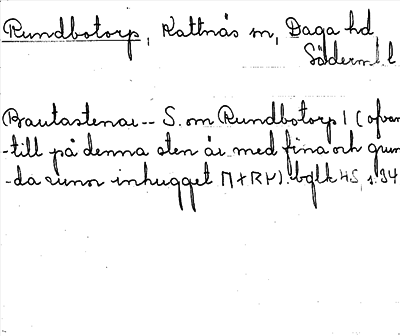 Rundbotorp, Kattnäs sn, Daga hd
Söderml. l.
Bautastenar -- S. om Rundbotorp | (ofvan
-till på denna sten är med fina och grun
-da runor inhugget ᚢᚼᚱᚴ). bglk HS, s. 34